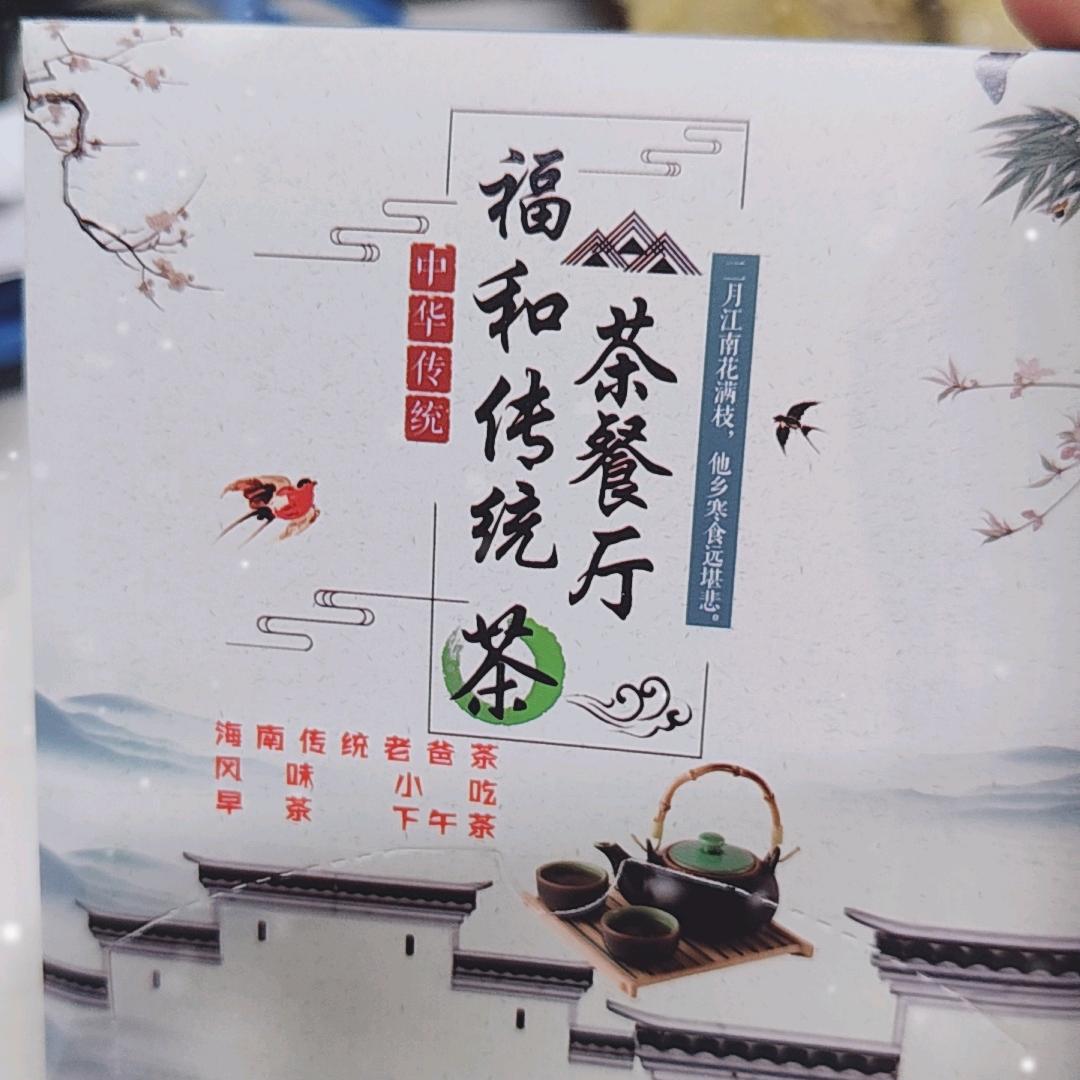 中华传统
福和传统茶
茶餐厅
二月江南花满枝，他乡寒食远堪悲。
海南传统老爸茶
风味小吃
早茶 下午茶